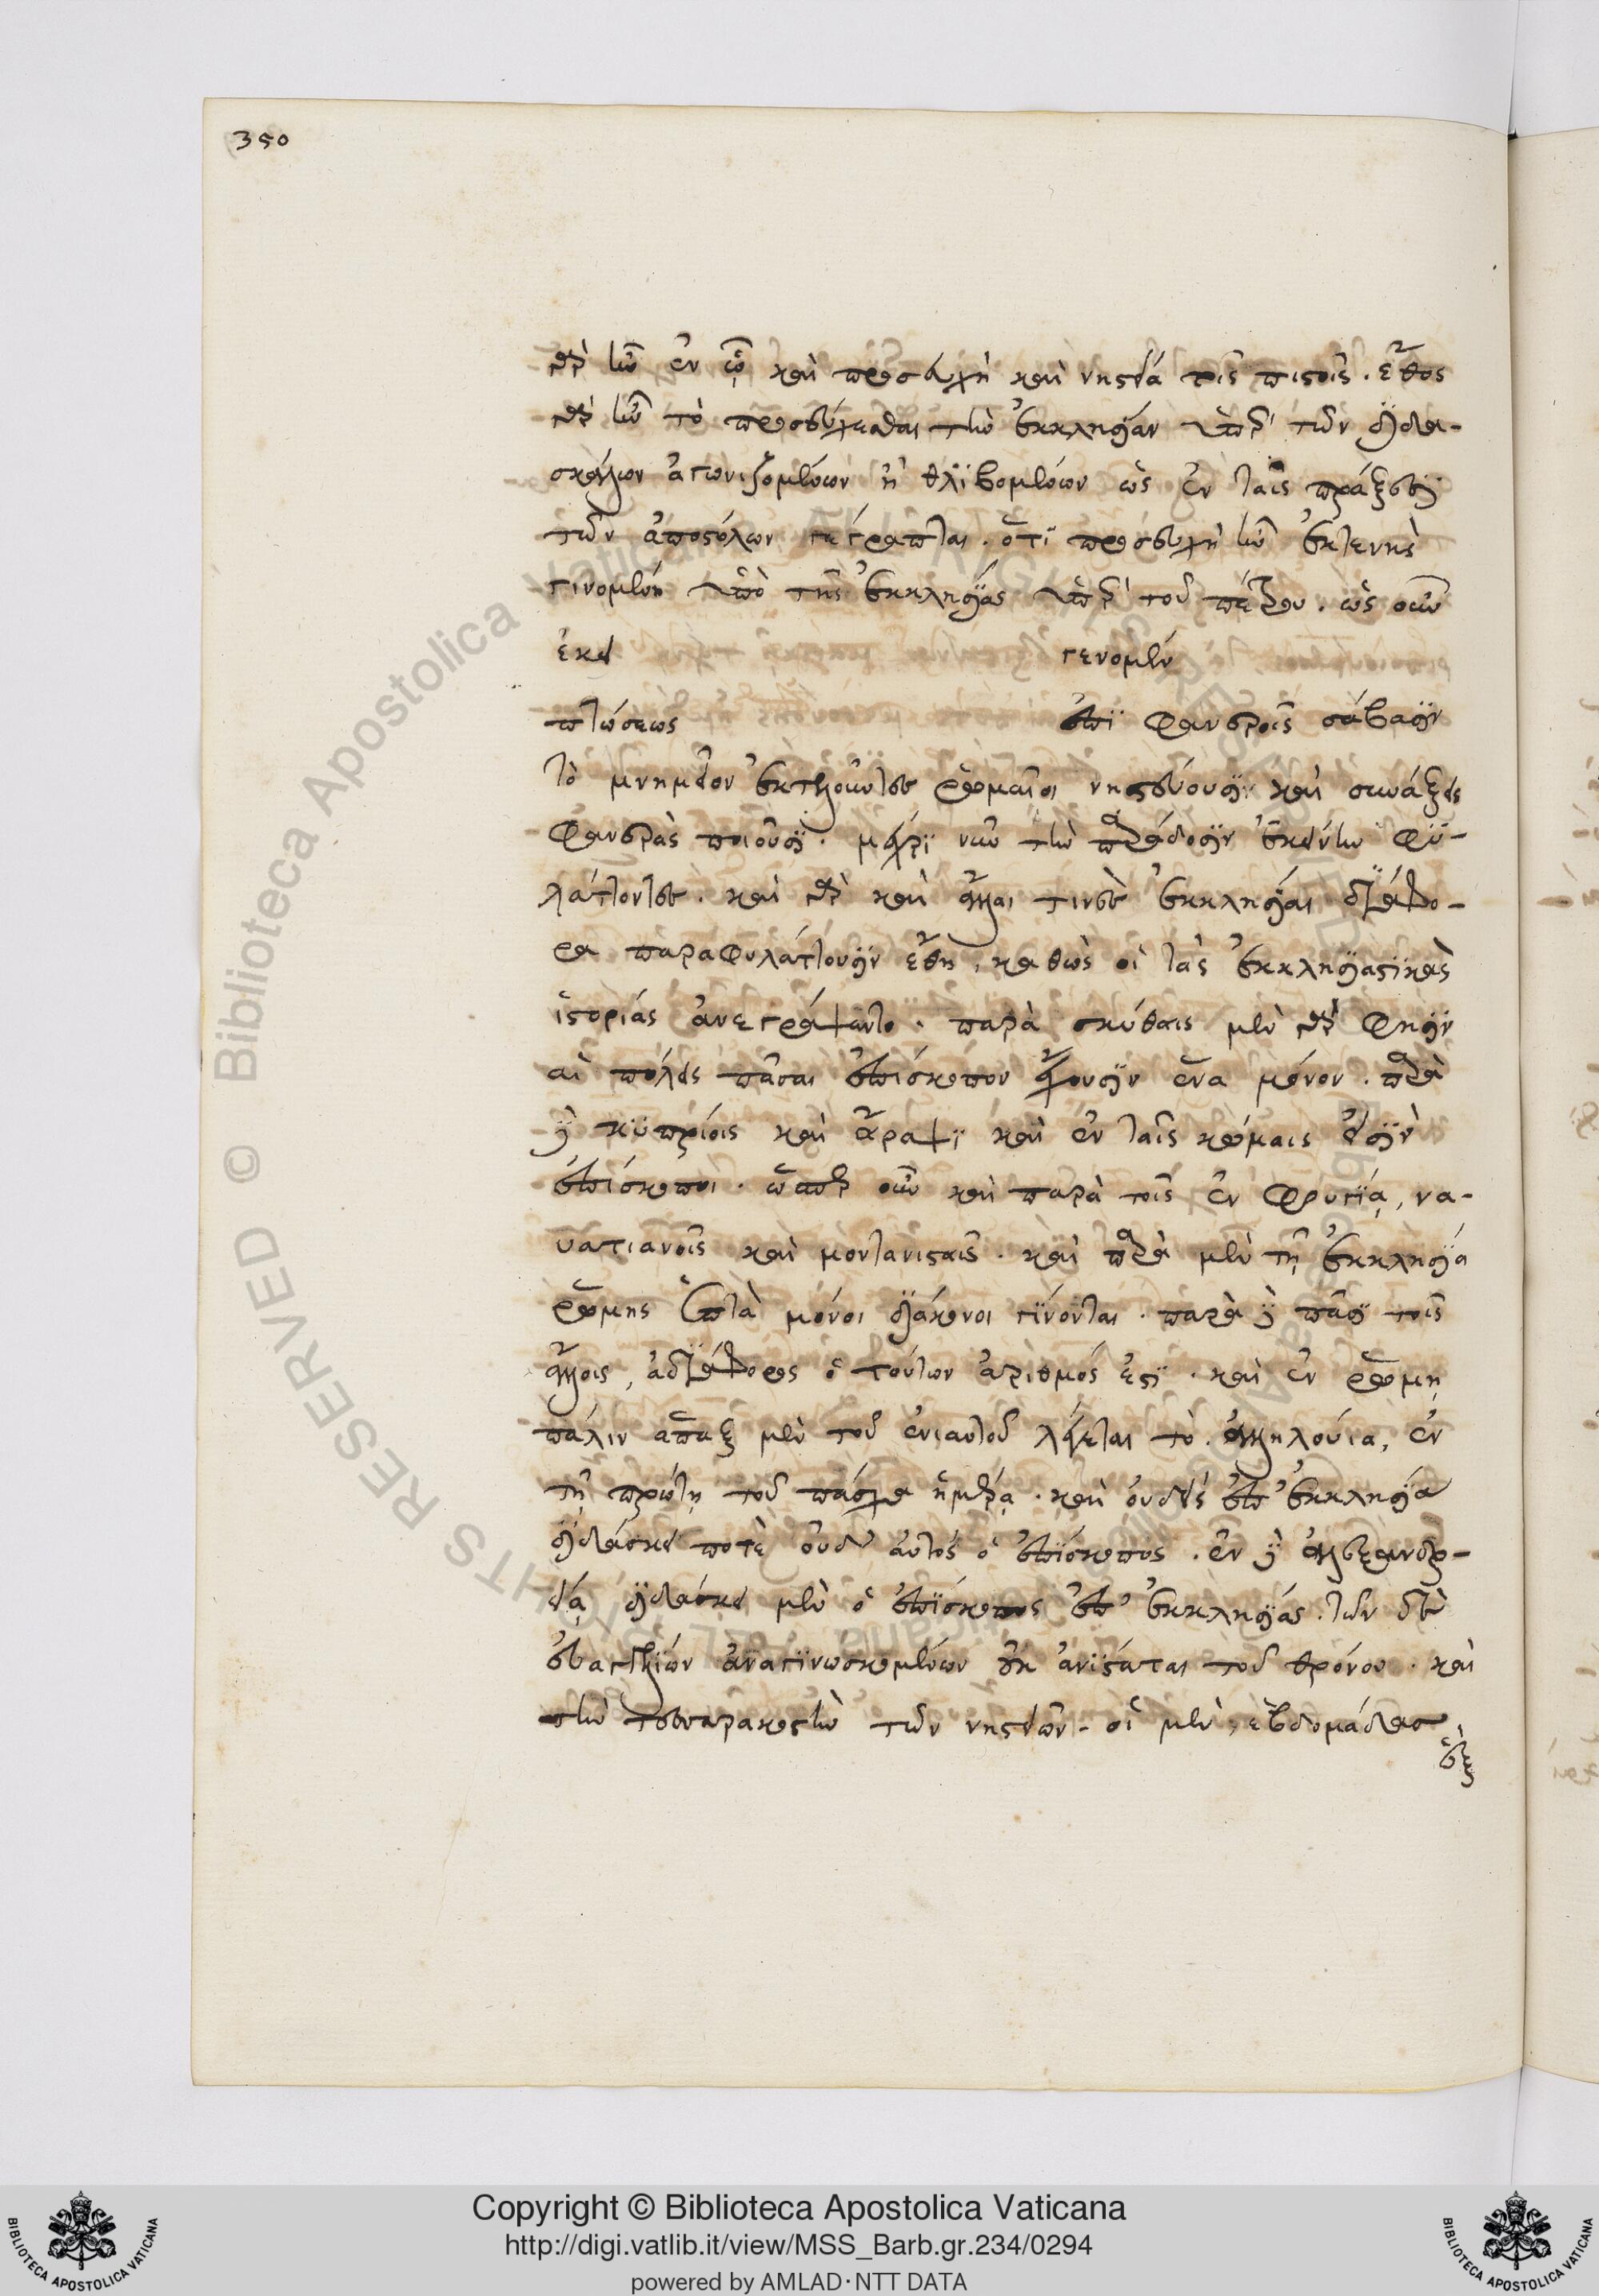 350
γὰρ ἦν ἐν ᾧ καὶ προσευχὴ καὶ νηστεία τοῖς πιστοῖς. ἔθος
γὰρ ἦν τὸ προσεύχεσθαι τὴν ἐκκλησίαν ὑπὲρ τῶν διδα-
σκάλων ἀγωνιζομένων ἢ θλιβομένων ὡς ἐν ταῖς πράξεσι
τῶν ἀποστόλων γέγραπται. ὅτι προσευχὴ ἦν ἐκτενὴς
γινομένη ὑπὸ τῆς ἐκκλησίας ὑπὲρ τοῦ πέτρου. ὡς οὖν
ἐκεῖ γενομέν
πτώσεως ἐπὶ φανεροῖς σάβασιν
τὸ μνημεῖον ἐκτελοῦντες ῥωμαῖοι νηστεύουσι καὶ συνάξεις
φανερὰς ποιοῦσι. μέχρι νῦν τὴν παράδοσιν ἐκείνην φυ-
λάττοντες. καὶ γὰρ καὶ ἄλλαι τινὲς ἐκκλησίαι διάφο-
ρα παραφυλάττουσιν ἔθη, καθὼς οἱ τὰς ἐκκλησιαστικὰς
ἱστορίας ἀνεγράψαντο. παρὰ σκύθαις μὲν γὰρ φησὶν
αἱ πόλεις πᾶσαι ἐπίσκοπον ἔχουσιν ἕνα μόνον. παρὰ
δὲ κυπρίοις καὶ ἄραψι καὶ ἐν ταῖς κώμαις εἰσὶν
ἐπίσκοποι. ὥσπερ οὖν καὶ παρὰ τοῖς ἐν φρυγίᾳ, να-
υατιανοῖς καὶ μοντανισταῖς. καὶ παρὰ μὲν τῇ ἐκκλησίᾳ
ῥώμης ἑπτὰ μόνοι διάκονοι γίνονται. παρὰ δὲ πᾶσι τοῖς
ἄλλοις, ἀδιάφορος ὁ τούτων ἀριθμός ἐστι. καὶ ἐν ῥώμῃ
πάλιν ἅπαξ μὲν τοῦ ἐνιαυτοῦ λέγεται τὸ ἀλληλούια, ἐν
τῇ πρώτῃ τοῦ πάσχα ἡμέρᾳ. καὶ οὐδεὶς ἐπ' ἐκκλησίᾳ
διδάσκει ποτὲ οὐδ' αὐτός ὁ ἐπίσκοπος. ἐν δὲ ἀλεξανδρ-
είᾳ, διδάσκει μὲν ὁ ἐπίσκοπος ἐπ' ἐκκλησίας. τῶν δὲ
εὐαγγελίων ἀναγινωσκομένων οὐκ ἀνίσταται τοῦ θρόνου. καὶ
τὴν τεσσαρακοστὴν τῶν νηστειῶν. οἱ μὲν, ἑβδομάδας
ἓξ
Copyright © Biblioteca Apostolica Vaticana
http://digi.vatlib.it/view/MSS_Barb.gr.234/0294
powered by AMLAD·NTT DATA